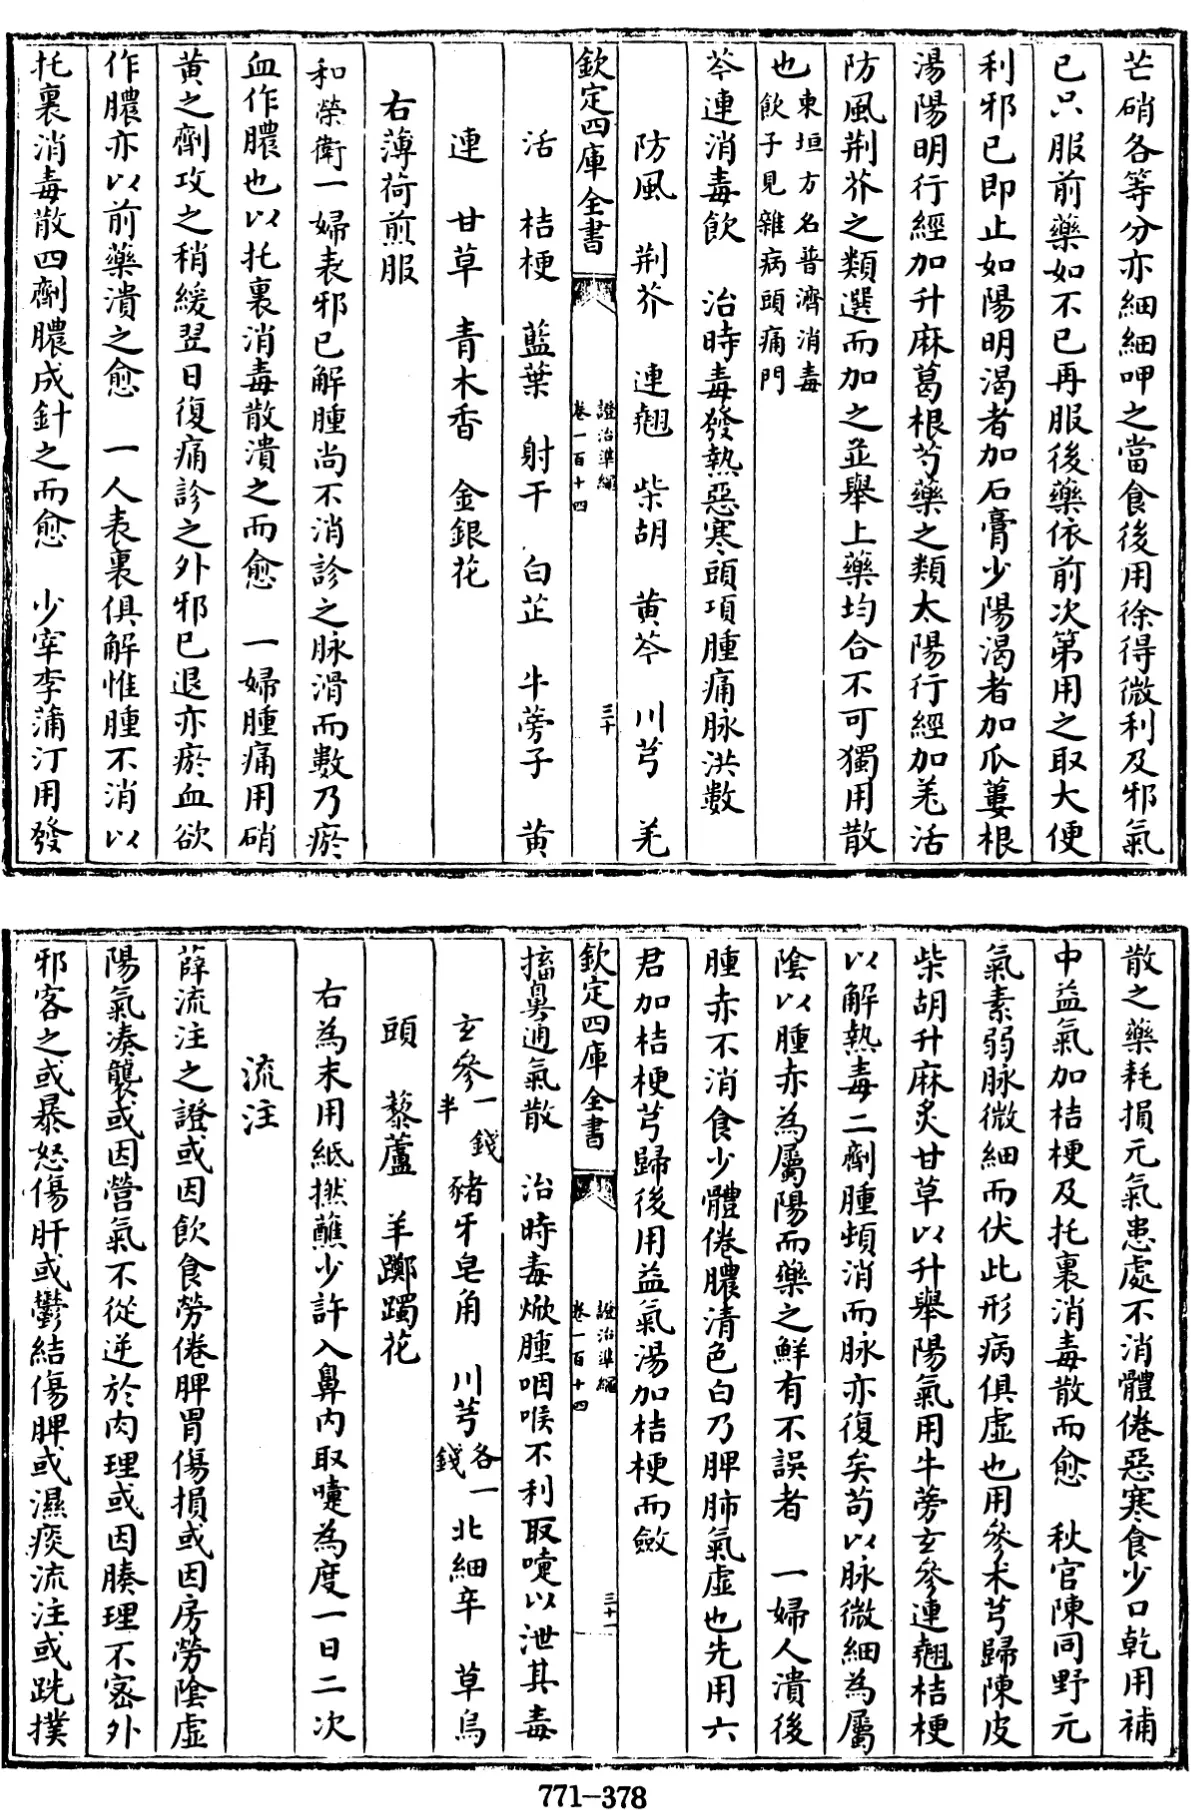 芒硝各等分亦細細呷之當食後用徐得微利及邪氣
已只服前藥如不已再服後藥依前次第用之取大便
利邪已即止如陽明渴者加石膏少陽渴者加瓜蔞根
湯陽明行經加升麻葛根芍藥之類太陽行經加羌活
防風荆芥之類選而加之並舉上藥均合不可獨用散
也東垣方名普濟消毒
飲子見雜病頭痛門
芩連消毒飲　治時毒發熱惡寒頭項腫痛脉洪數
防風　荆芥　連翹　柴胡　黄芩　川芎　羌
欽定四庫全書
證治準繩
卷一百十四
三十
活　桔梗　藍葉　射干　白芷　牛蒡子　黄
連　甘草　青木香　金銀花
右薄荷煎服
和榮衛一婦表邪已解腫尚不消診之脉滑而數乃瘀
血作膿也以托裏消毒散潰之而愈　一婦腫痛用硝
黄之劑攻之稍緩翌日復痛診之外邪已退亦瘀血欲
作膿亦以前藥潰之愈　一人表裏俱解惟腫不消以
托裏消毒散四劑膿成針之而愈　少宰李蒲汀用發
散之藥耗損元氣患處不消體倦惡寒食少口乾用補
中益氣加桔梗及托裏消毒散而愈　秋官陳同野元
氣素弱脉微細而伏此形病俱虚也用參术芎歸陳皮
柴胡升麻炙甘草以升舉陽氣用牛蒡玄參連翹桔梗
以解熱毒二劑腫頓消而脉亦復矣苟以脉微細為屬
陰以腫赤為屬陽而藥之鮮有不誤者　一婦人潰後
腫赤不消食少體倦膿清色白乃脾肺氣虚也先用六
君加桔梗芎歸後用益氣湯加桔梗而斂
欽定四庫全書
證治準繩
卷一百十四
三十一
搐鼻通氣散　治時毒焮腫咽喉不利取嚏以泄其毒
玄參一錢半　豬牙皂角　川芎各一錢　北細辛　草烏
頭　藜蘆　羊躑躅花
右為末用紙撚蘸少許入鼻内取嚏為度一日二次
流注
薛流注之證或因飲食勞倦脾胃傷損或因房勞陰虚
陽氣凑襲或因營氣不從逆於肉理或因腠理不密外
邪客之或暴怒傷肝或鬱結傷脾或濕痰流注或跣撲
771–378